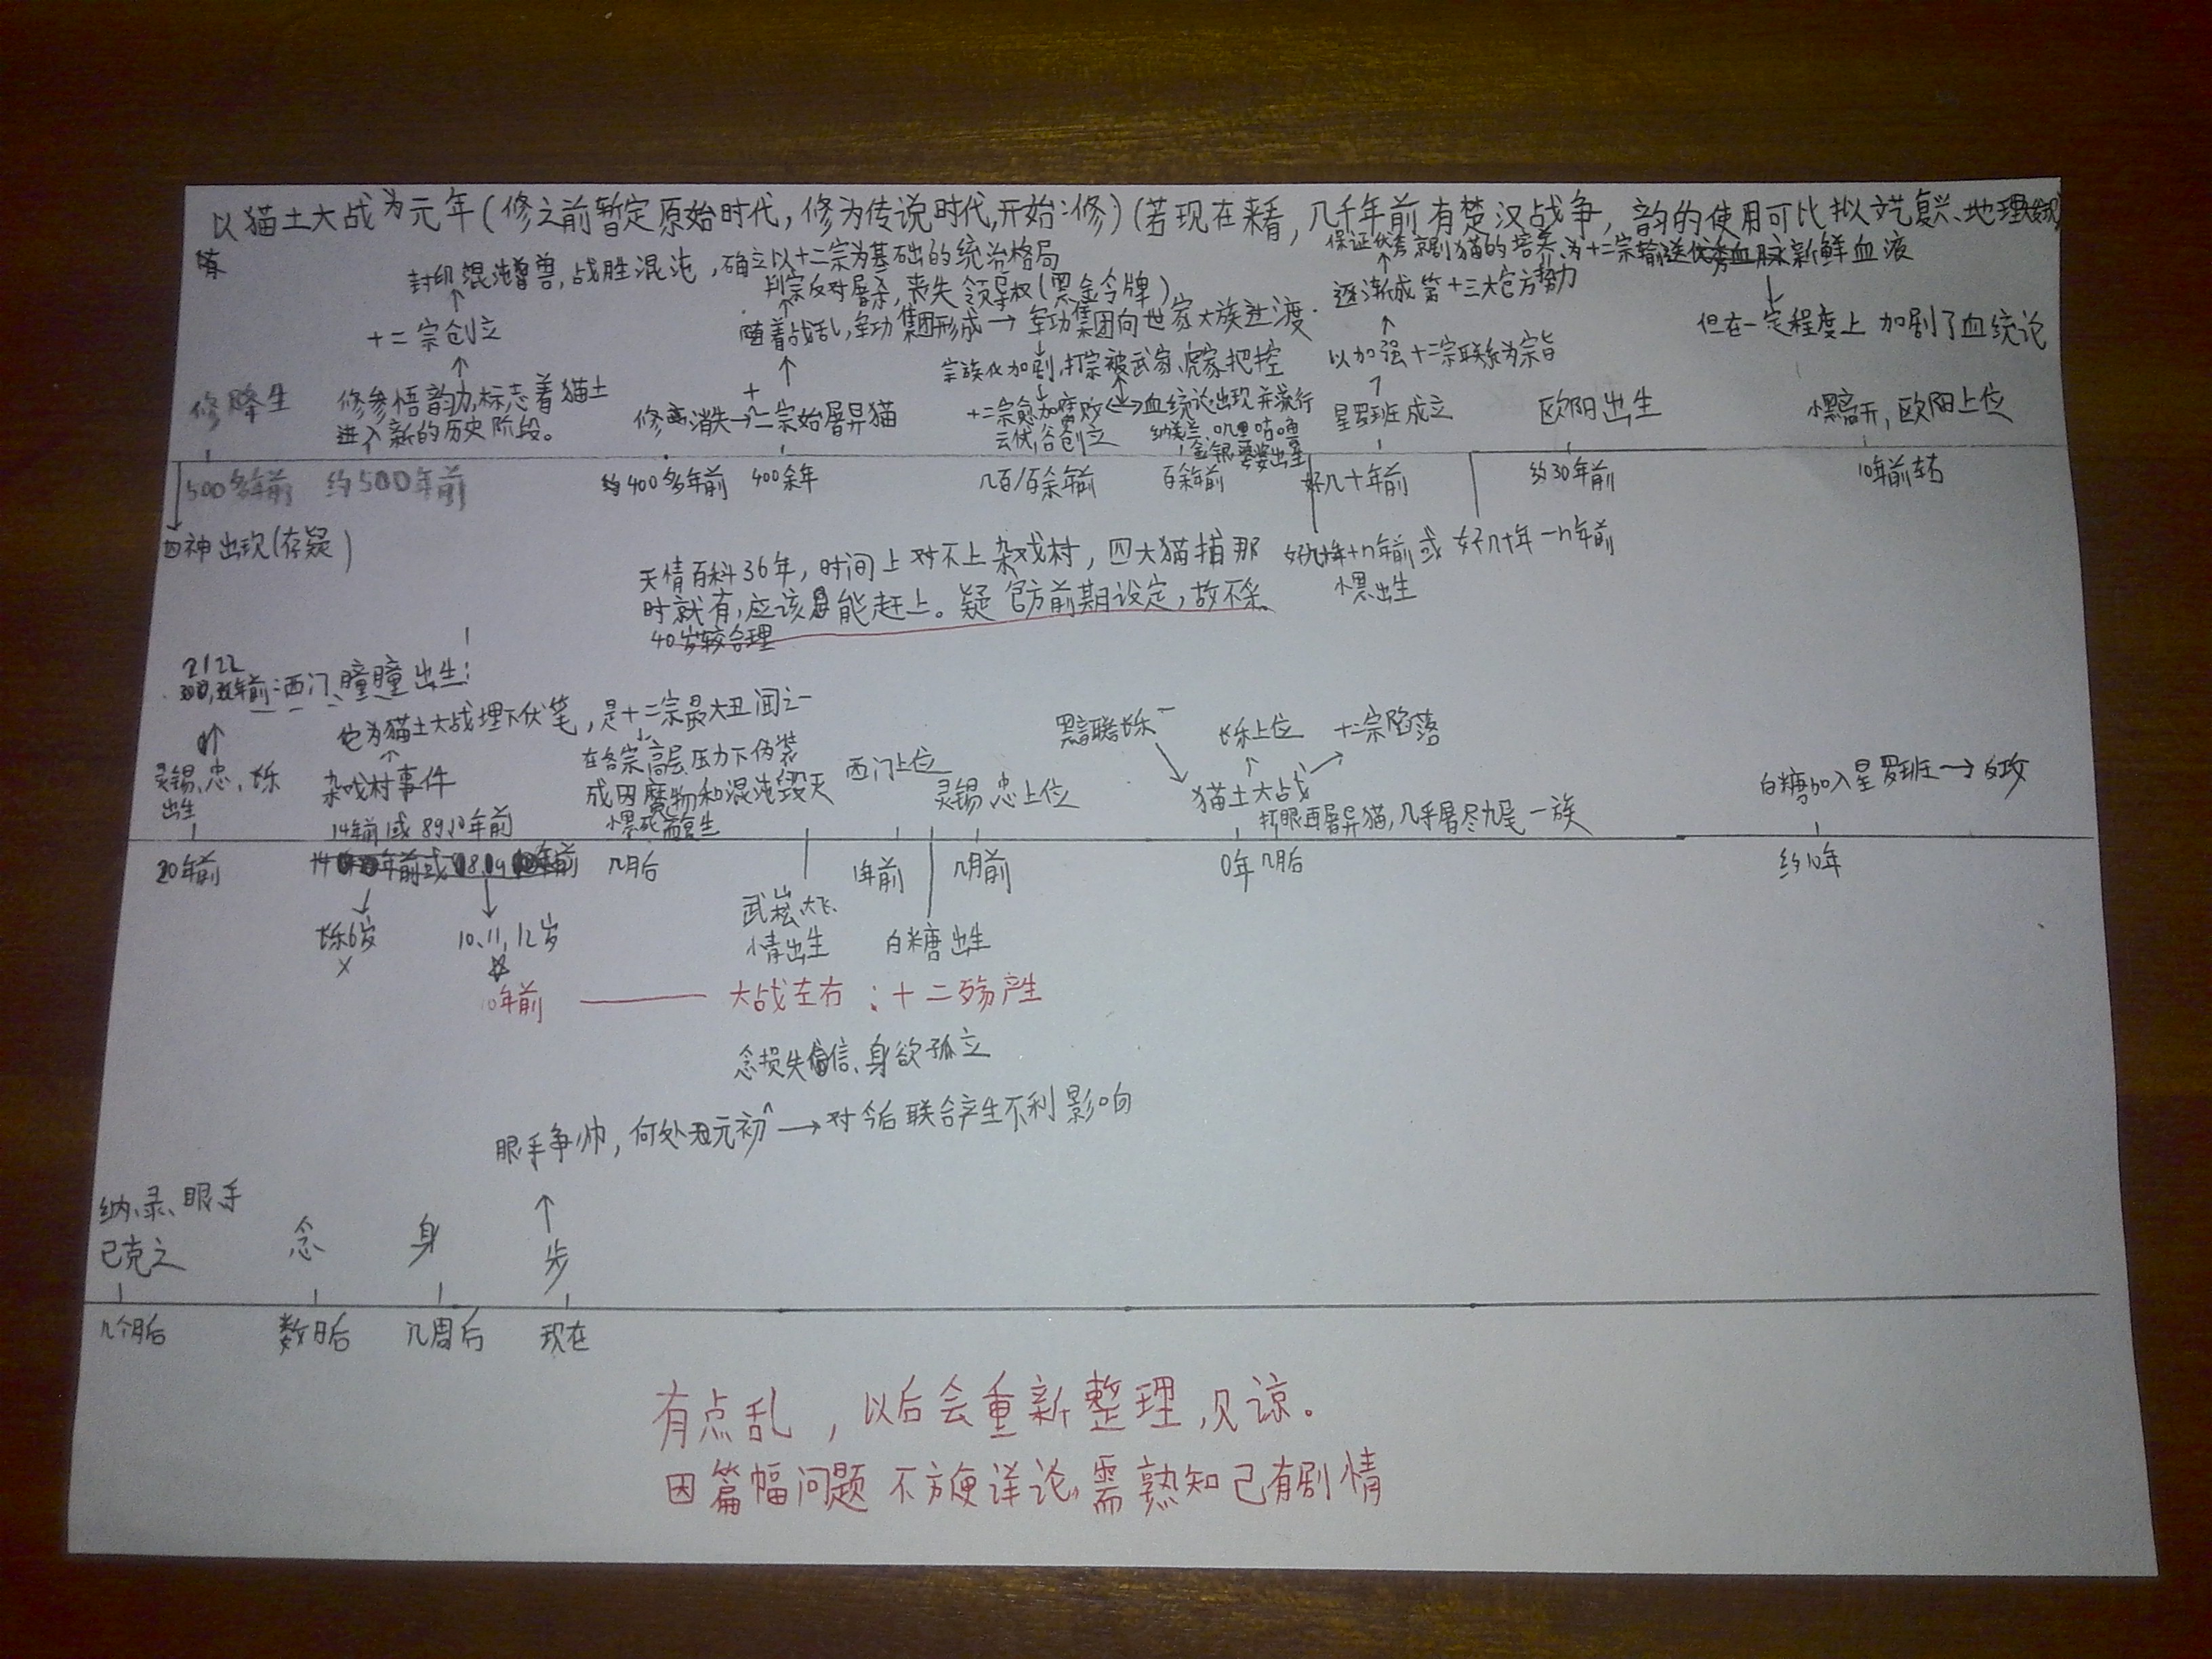 以猫土大战为元年(修之前暂定原始时代,修为传说时代,开始:修)(若现在来看,几千年前有楚汉战争,韵的使用可比拟文艺复兴、地理
保证优秀京剧猫的培养,为十二宗输送新鲜血液
封印混沌兽,战胜混沌,确立以十二宗为基础的统治格局
判宗反对屠杀,丧失领导权(黑金令牌)
逐渐成第十三大官方势力
十二宗创立
随着战乱,军功集团形成→军功集团向世家大族过渡
但在一定程度上加剧了血统论
宗族化加剧,打宗被武家、虎家把控
以加强十二宗联系为宗旨
修降生
修参悟韵力,标志着猫土
进入新的历史阶段。
修消失→十二宗始屠异猫
十二宗愈加腐败↔血统论出现并流行
云伏谷创立
纳美兰、叽里咕噜
金银婆婆出生
星罗班成立
欧阳出生
小黑离开,欧阳上位
500多年前
约500年前
约400多年前
400余年
几百/百余年前
百余年前
好几十年前
约30年前
10年前左右
四神出现(存疑)
天情百科36年,时间上对不上杂戏村,四大猫捕那
时就有,应该能赶上。疑官方前期设定,故不采
40岁较合理
好几十年+n年前或好几十年-n年前
小黑出生
21 22
年前:西门、瞳瞳出生
也为猫土大战埋下伏笔,是十二宗最大丑闻之一
在各宗高层压力下伪装
成因魔物和混沌毁灭
小黑死而复生
灵锡、忠、长乐
出生
杂戏村事件
14年前或8 9 10年前
西门上位
灵锡、忠上位
黑暗唬长乐
长乐上位
十二宗陷落
猫土大战
打眼再屠异猫,几乎屠尽九尾一族
白糖加入星罗班→反攻
20年前
几月后
1年前
几月前
0年
几月后
约10年
长乐6岁
×
10、11、12岁
武崧、大飞、
小青出生
白糖出生
10年前——大战左右:十二殇产生
念损失信、身欲孤立
眼手争帅,何处元初→对今后联合产生不利影响
纳、录、眼、手
已克之
念
身
步
几个月后
数日后
几周后
现在
有点乱,以后会重新整理,见谅。
因篇幅问题不方便详论,需熟知已有剧情